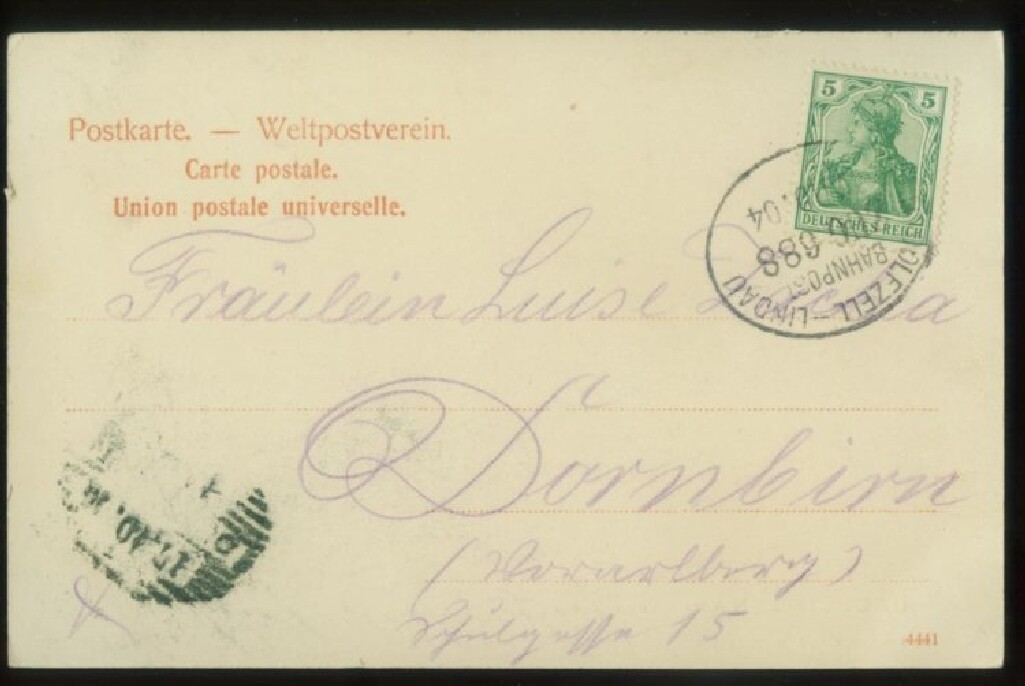 Postkarte. — Weltpostverein.
Carte postale.
Union postale universelle.
5 5
DEUTSCHES REICH
OLFZELL - LINDAU
BAHNPOST
688
04
Fräulein Luise
Dornbirn
(Vorarlberg)
Schulgasse 15
4441